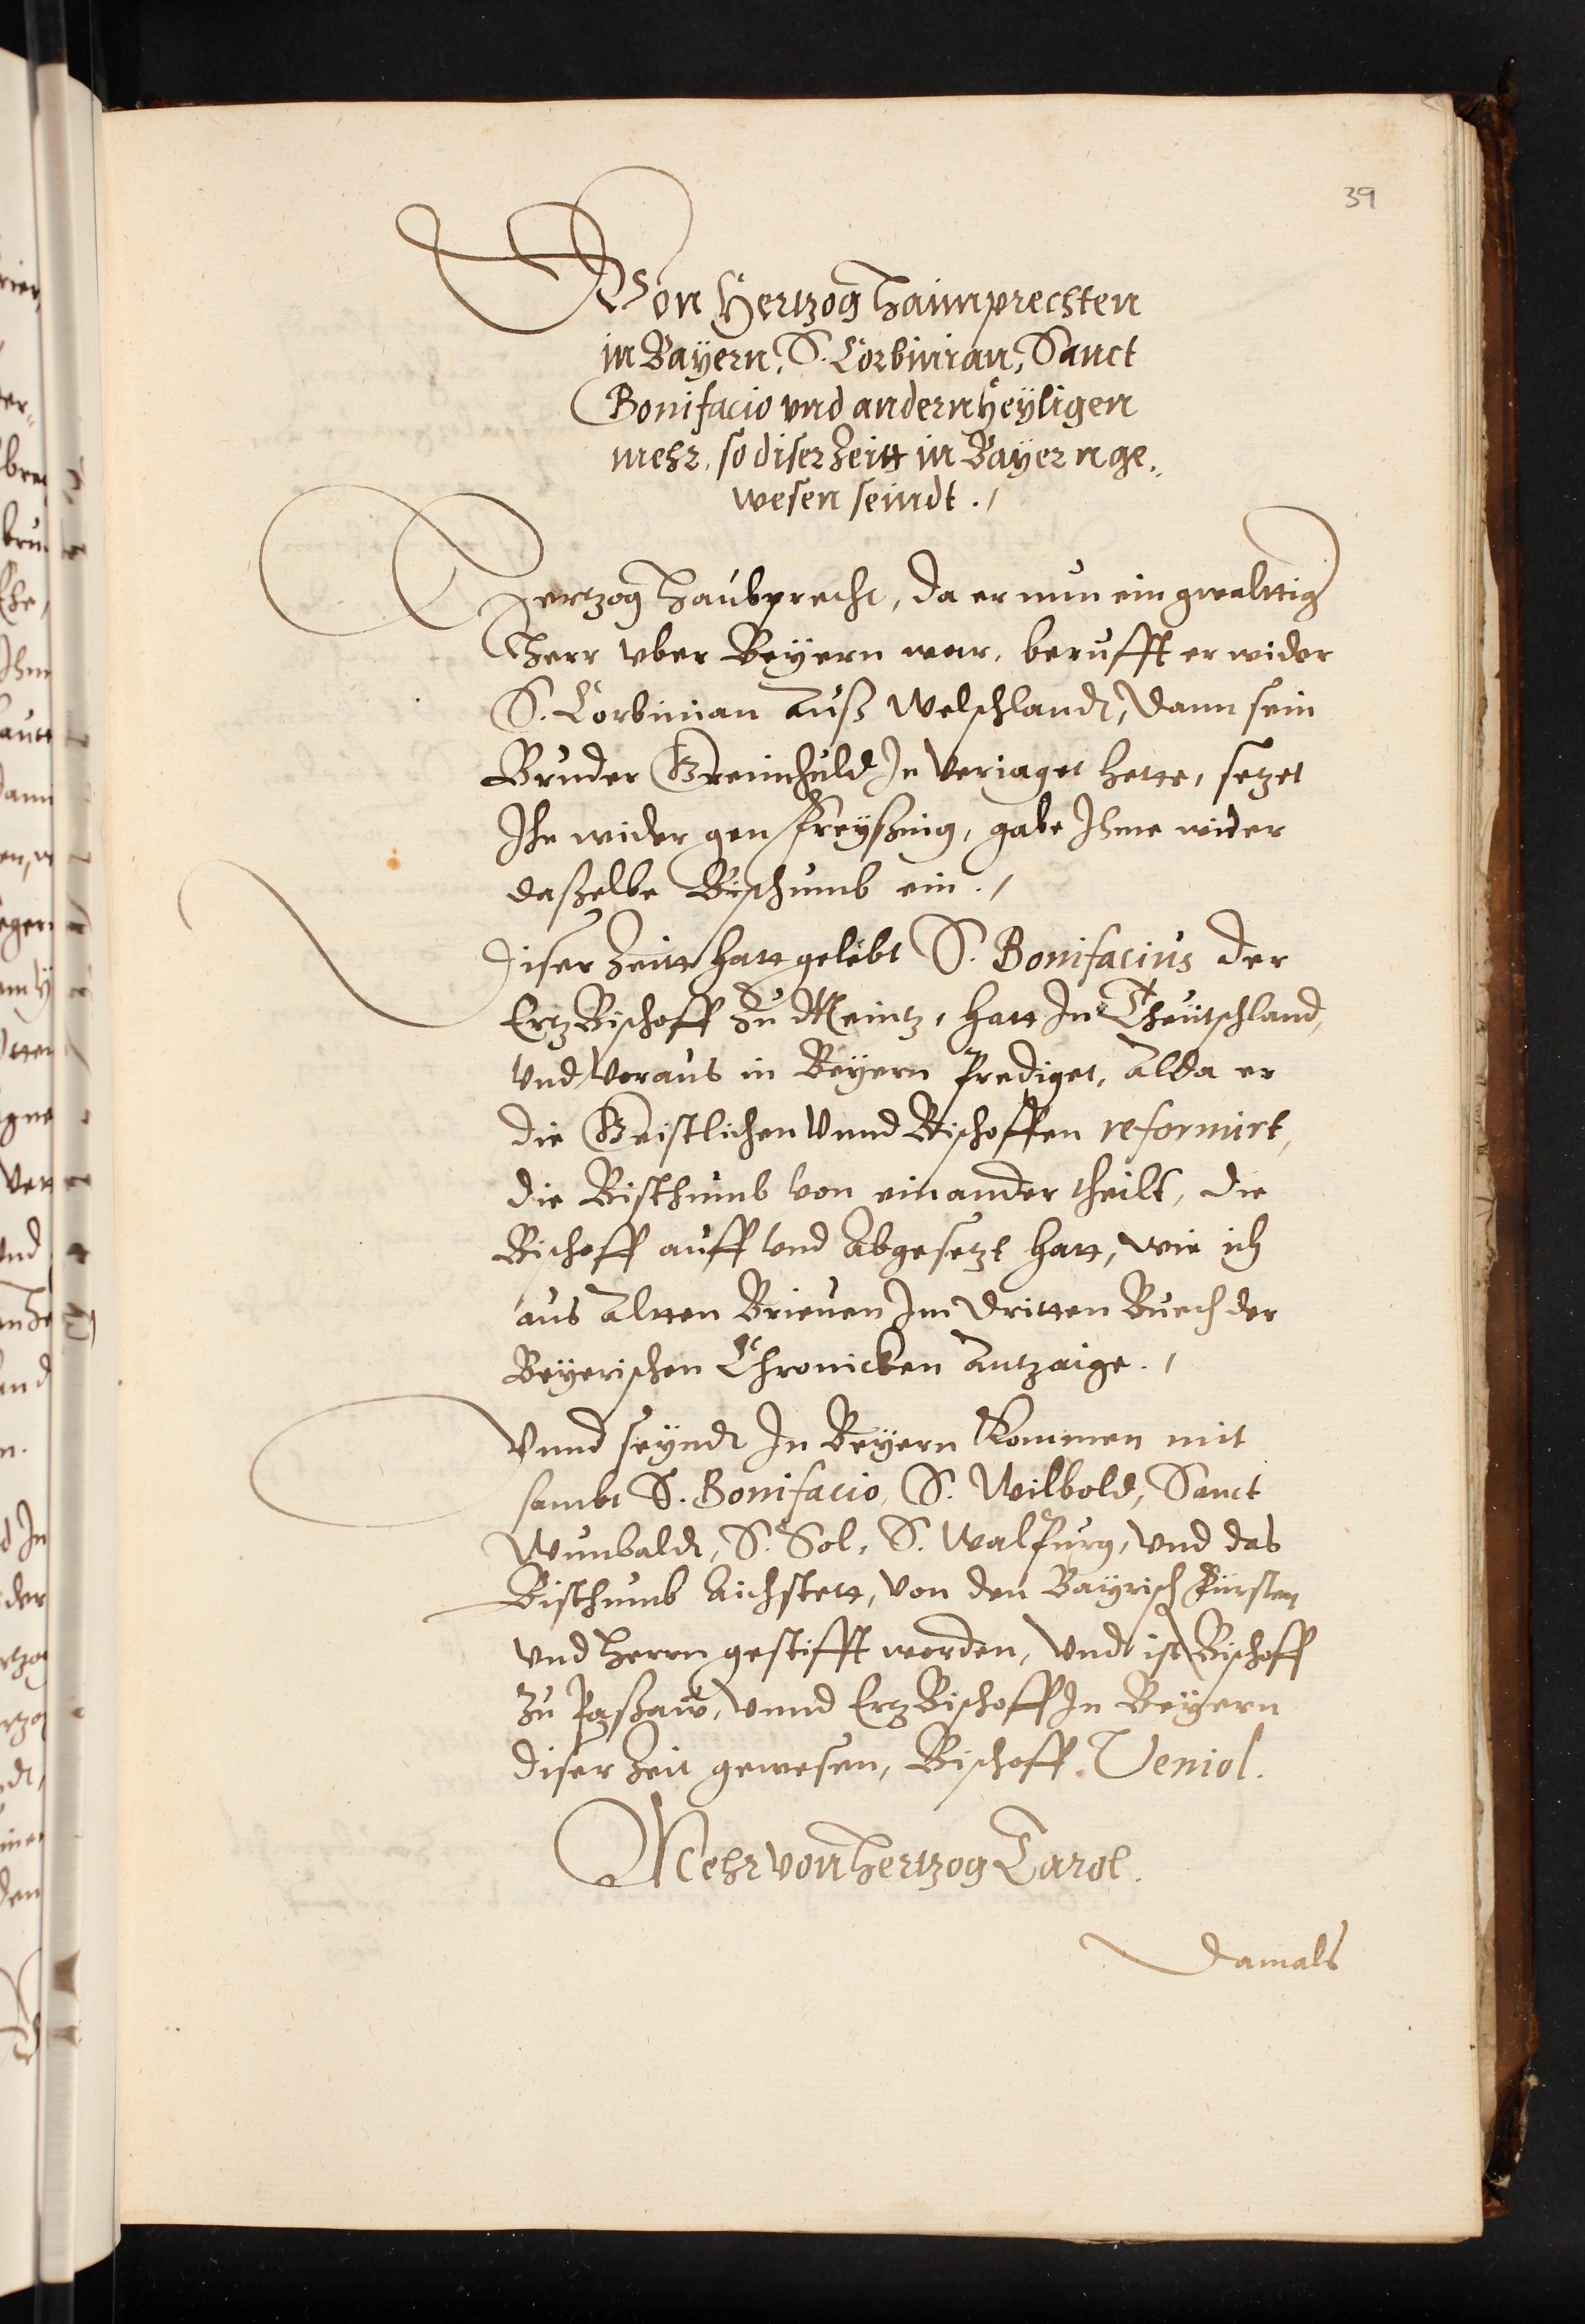 39
Von Hertzog Haimprechten
in Bayern, S. Corbinian, Sanct
Bonifacio vnd andern heyligen
mehr, so diser Zeitt in Bayern ge„
wesen seindt ./
Hertzog Haubprecht, da er nun ein gwalttig
Herr vber Beyern war, berufft er wider
S. Corbinian Auß Welschlandt, dann sein
Bruder Greimhuld In Veriaget hette, setzet
Ihn wider gen Freyßing, gabe Ihme wider
daßelbe Bischumb ein ./
Diser Zeitt hatt gelebt S. Bonifacius der
ErtzBischoff Zu Meintz, hatt In Theutschland,
vnd voraus in Beyern Prediget, Alda er
die Geistlichen Vnnd Bischoffen reformirt,
die Bisthumb von einander theilt, die
Bischoff auff vnd Abgesetzt hatt, wie ich
aus Altten Brieuen Im dritten Buech der
Beyerischen Chronicken Antzaige ./
Vnnd seyndt In Beyern Kommen mit
sambt S. Bonifacio, S. Wilbold, Sanct
Wunbaldt, S. Sol, S. Walpurg, vnd das
Bisthumb Aichstett, von den Bayrisch Fürsten
vnd Herrn gestifft worden, Vndt ist Bischoff
Zu Paßaw, Vnnd ErtzBischoff In Beyern
diser Zeit gewesen, Bischoff Veniol.
Mehr von Hertzog Carol.
Damals